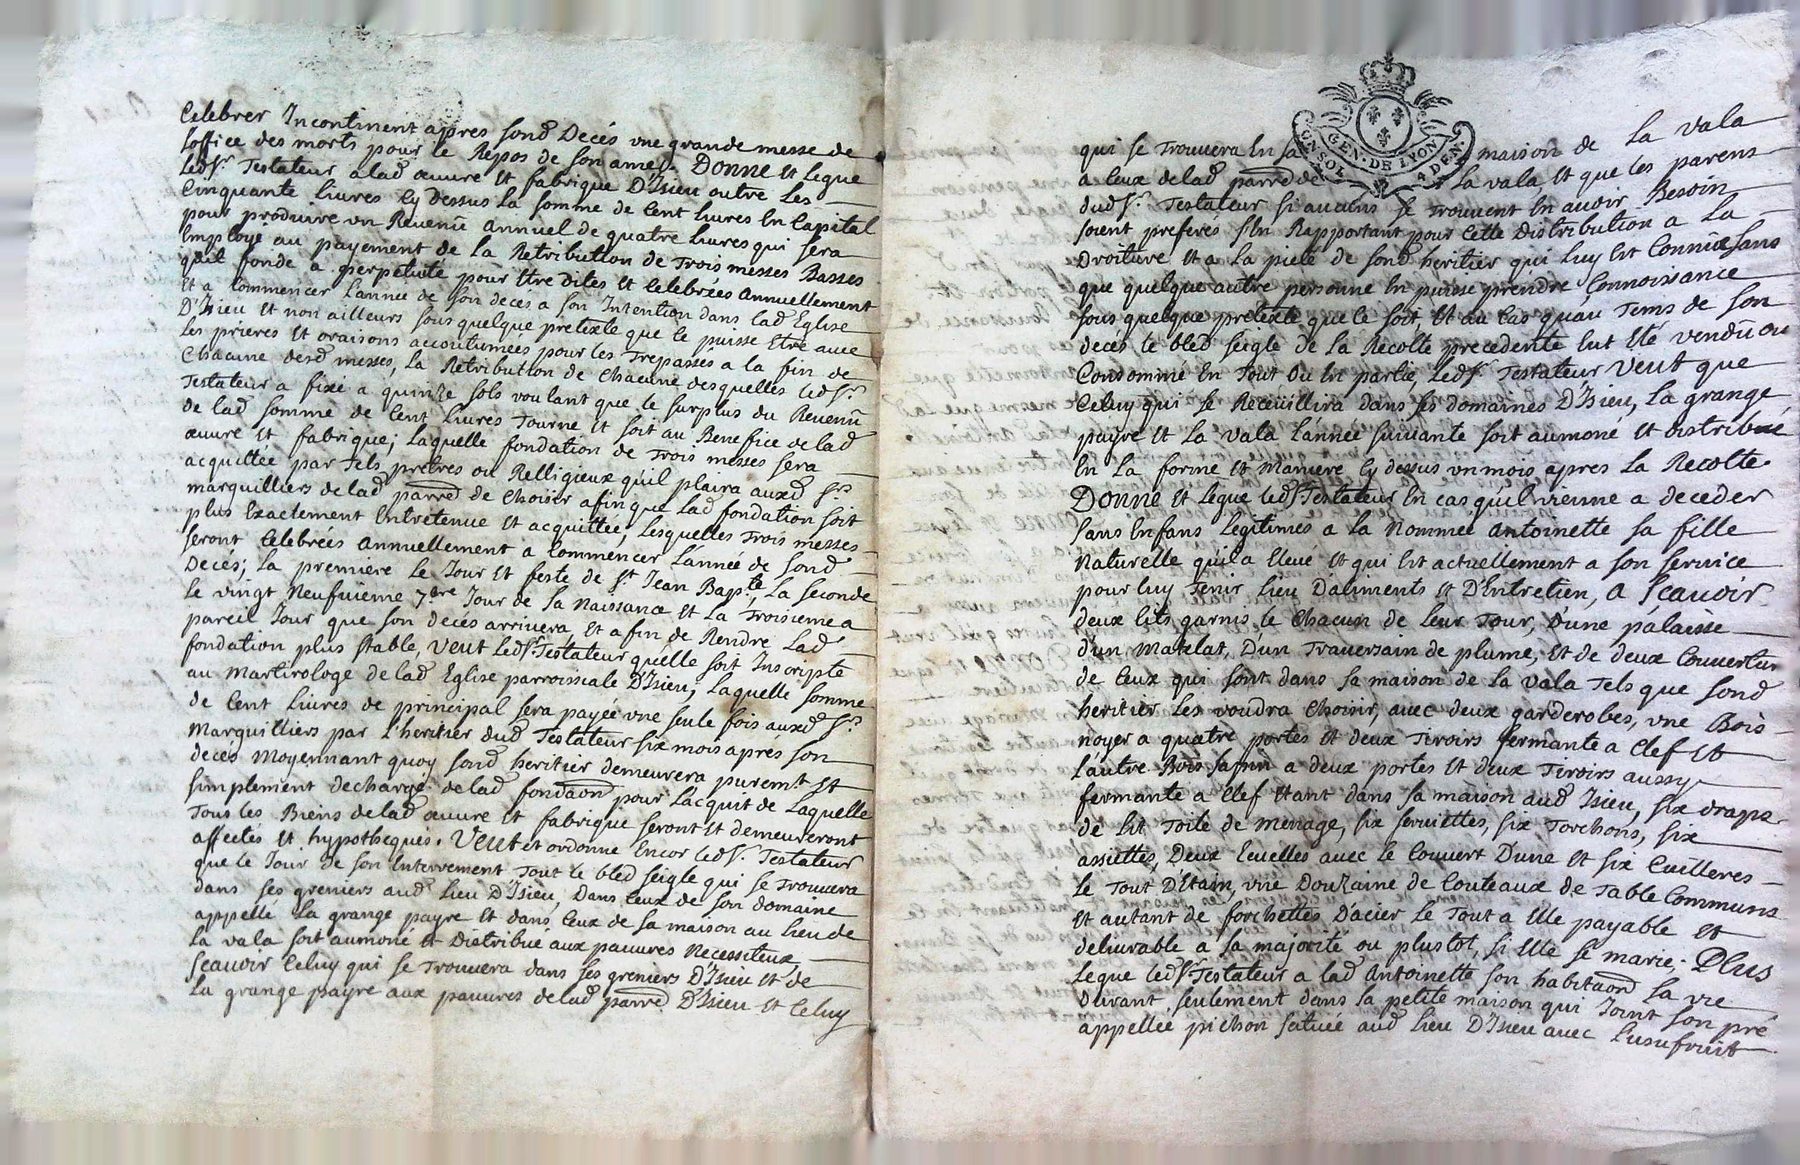 Celebrer Incontinent apres sond Decés vne grande messe de
l'office des morts pour le Repos de son ame. DONNE et Legue
ledsr. Testateur a lad œuvre et fabrique D'Isieu outre Les
Cinquante livres Cy dessus La somme de Cent livres En Capital
pour produire vn Revenu annuel de quatre livres qui sera
Employé au payement de La Retribution de Trois messes Basses
quil fonde a perpetuité pour Etre dites et Celebrées annuellement
Et a Commencer L'année de son deces a son Intention dans lad Eglise
D'Isieu et non ailleurs sous quelque pretexte que le puisse Etre avec
Les prieres et oraisons accoutumées pour les Trepassés a la fin de
Chacune desd messes, La Retribution de Chacune desquelles ledsr.
Testateur a fixé a quinze sols voulant que le surplus du Revenu
de lad somme de Cent Livres Tourne et soit au Benefice de lad
œuvre et fabrique; Laquelle fondation de Trois messes sera
acquittée par Tels pretres ou Relligieux quil plaira auxd srs.
marguilliers de lad parred de Choisir afin que Lad fondation soit
plus Exactement Entretenue et acquittée, Lesquelles Trois messes
seront Celebrées annuellement a Commencer L'année de sond
Decés; La premiere le Jour et feste de st. Jean Bapte, La seconde
le vingt Neufuieme 7bre Jour de sa Naissance et La Troisieme a
pareil Jour que son decés arrivera, Et afin de Rendre Lad
fondation plus stable, Veut ledsr. Testateur qu'elle soit Inscripte
au Martirologe de lad Eglise parroissiale D'Isieu, Laquelle somme
de Cent Livres de principal sera payée vne seule fois auxd srs.
Marguilliers par l'heritier dud Testateur six mois apres son
decés Moyennant quoy sond heritier demeurera puremt. Et
simplement dechargé de lad fondaond pour L'acquit de Laquelle
Tous les Biens de lad œuvre et fabrique seront et demeureront
affectés et hypothequés. Veut et ordonne Encor ledsr. Testateur
que le Jour de son Enterrement Tout le bled seigle qui se Trouvera
dans ses greniers aud Lieu D'Isieu, Dans Ceux de son domaine
appellé La grange payre Et dans Ceux de sa maison au Lieu de
La vala soit aumoné et Distribué aux pauvres Necessiteux
scavoir Celuy qui se Trouvera dans ses greniers D'Isieu et de
La grange payre aux pauvres de lad parred D'Isieu et Celuy
qui se Trouvera En sa maison de La vala
a Ceux de lad parred de La vala, Et que les parens
dudsr. Testateur si aucuns se Trouvent En avoir Besoin
soient preferés s'En Rapportant pour Cette Distribution a La
Droiture Et a La pieté de sond heritier qui Luy Est Connüe sans
que quelque autre personne En puisse prendre Connoissance
sous quelque pretexte que le soit Et au Cas qu'au Tems de son
decés le bled seigle de La Recolte precedente Eut Eté vendu ou
Consommé En Tout Ou En partie, Ledsr. Testateur Veut que
Celuy qui se Receüillira dans ses domaines D'Isieu, La grange
payre Et La vala L'année suivante soit aumoné Et distribué
En La forme Et Maniere Cy dessus vn mois apres La Recolte.
DONNE Et Legue Ledsr Testateur En cas quil vienne a deceder
sans Enfans Legitimes a La Nommée Antoinette sa fille
Naturelle quil a Elevé Et qui Est actuellement a son service
pour Luy Tenir Lieu D'aliments Et D'Entretien, A Scavoir
deux Lits garnis le Chacun de Leur Tour, D'une palaisse
d'un Matelat, D'un Traversain de plume, Et de deux Couvertur
de Ceux qui sont dans sa maison de La vala Tels que sond
heritier Les voudra Choisir, avec deux garderobes, vne Bois
noyer a quatre portes Et deux Tiroirs fermante a Clef Et
L'autre Bois sapin a deux portes Et deux Tiroirs aussy
fermante a Clef Etant dans sa maison aud Isieu, six draps
de Lit Toile de Menage, six serviettes, six Torchons, six
assiettes, Deux Ecuelles avec Le Couvert D'une Et six Cuilleres
Le Tout D'Etain, vne Douzaine de Couteaux de Table Communs
Et autant de forchettes D'acier Le Tout a Elle payable Et
delivrable a sa majorité ou plustot, si Elle se marie; PLUS
Legue Ledsr. Testateur a lad Antoinette son habitaond sa vie
Durant seulement dans sa petite maison qui Joint son pré
appellée pichon scituée aud Lieu D'Isieu avec L'usufruit
GEN. DE LYON
UN SOL
4 DEN.